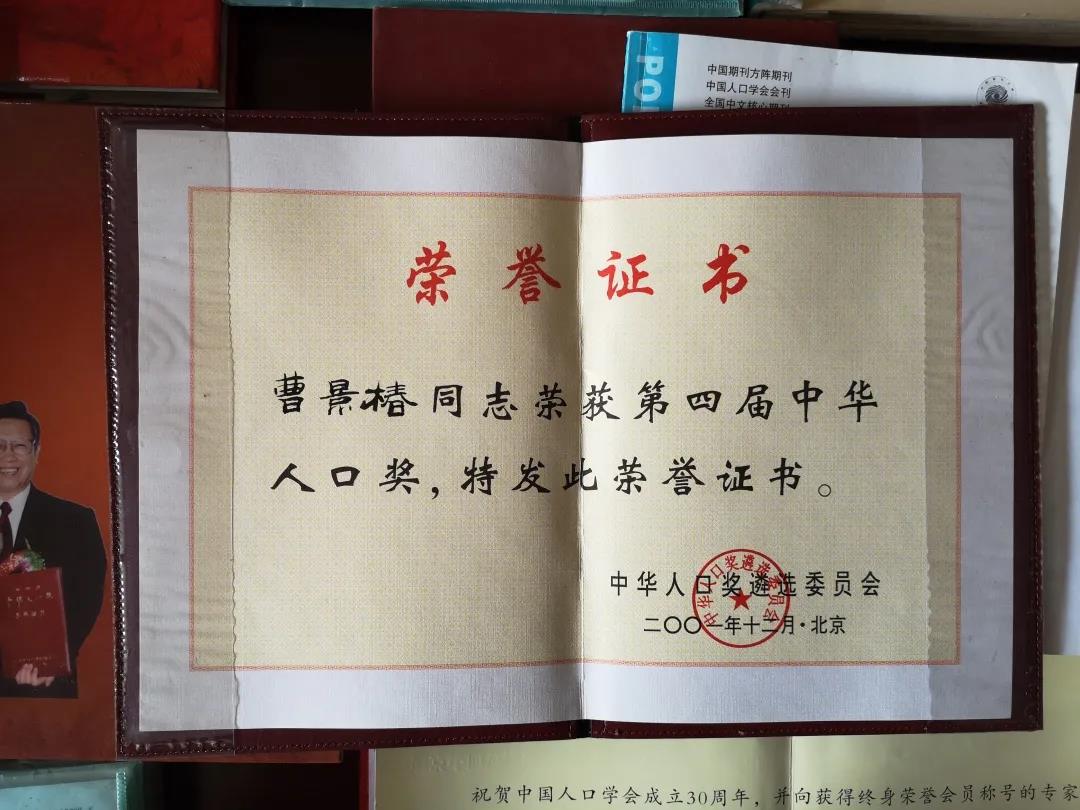 PO
中国期刊方阵期刊
中国人口学会会刊
全国中文核心期刊
荣誉证书
曹景椿同志荣获第四届中华
人口奖，特发此荣誉证书。
中华人口奖遴选委员会
中华人口奖遴选委员会
二〇〇一年十二月·北京
祝贺中国人口学会成立30周年，并向获得终身荣誉会员称号的专家